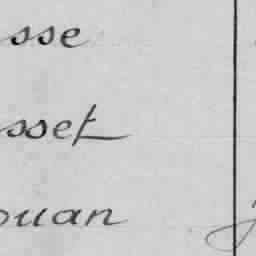 sse
sset
ouan